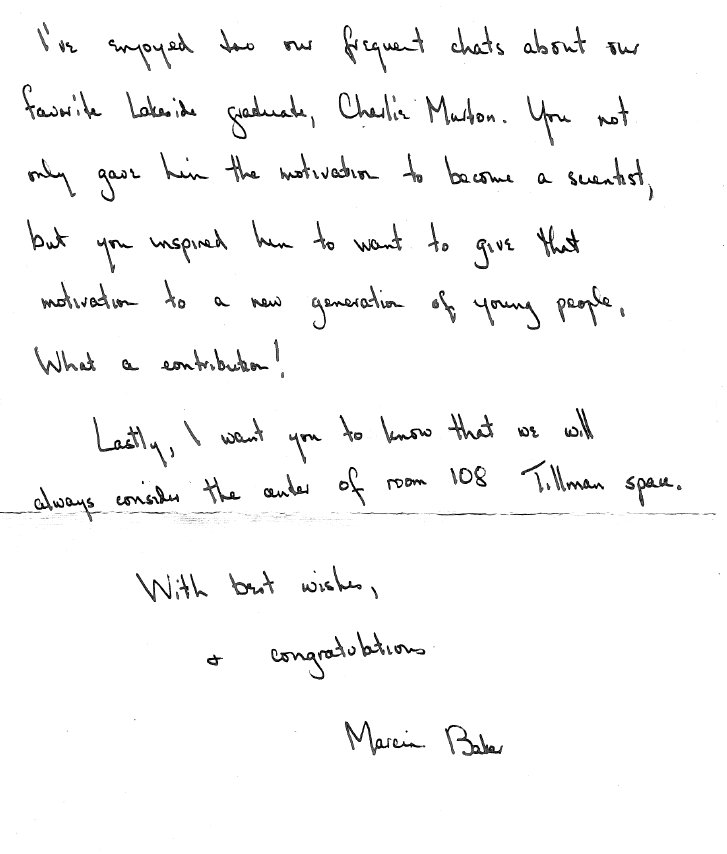 I've enjoyed too our frequent chats about our
favorite Lakeside graduate, Charlie Murton. You not
only gave him the motivation to become a scientist,
but you inspired him to want to give that
motivation to a new generation of young people.
What a contribution!
Lastly, I want you to know that we will
always consider the center of room 108 Tillman space.
With best wishes,
& congratulations
Marcia Baker